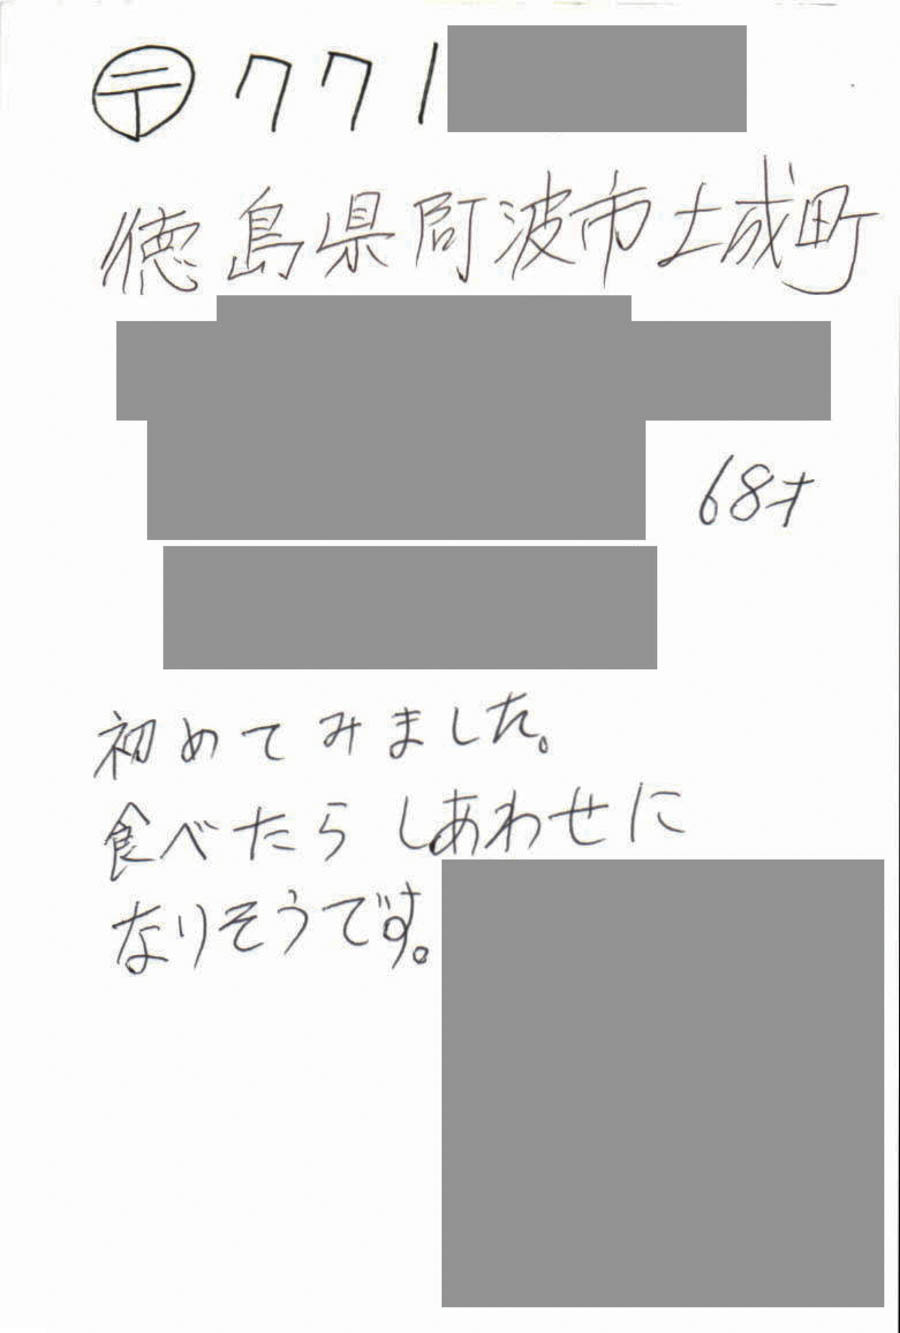 〒771
徳島県阿波市土成町
68才
初めてみました。
食べたら しあわせに
なりそうです。